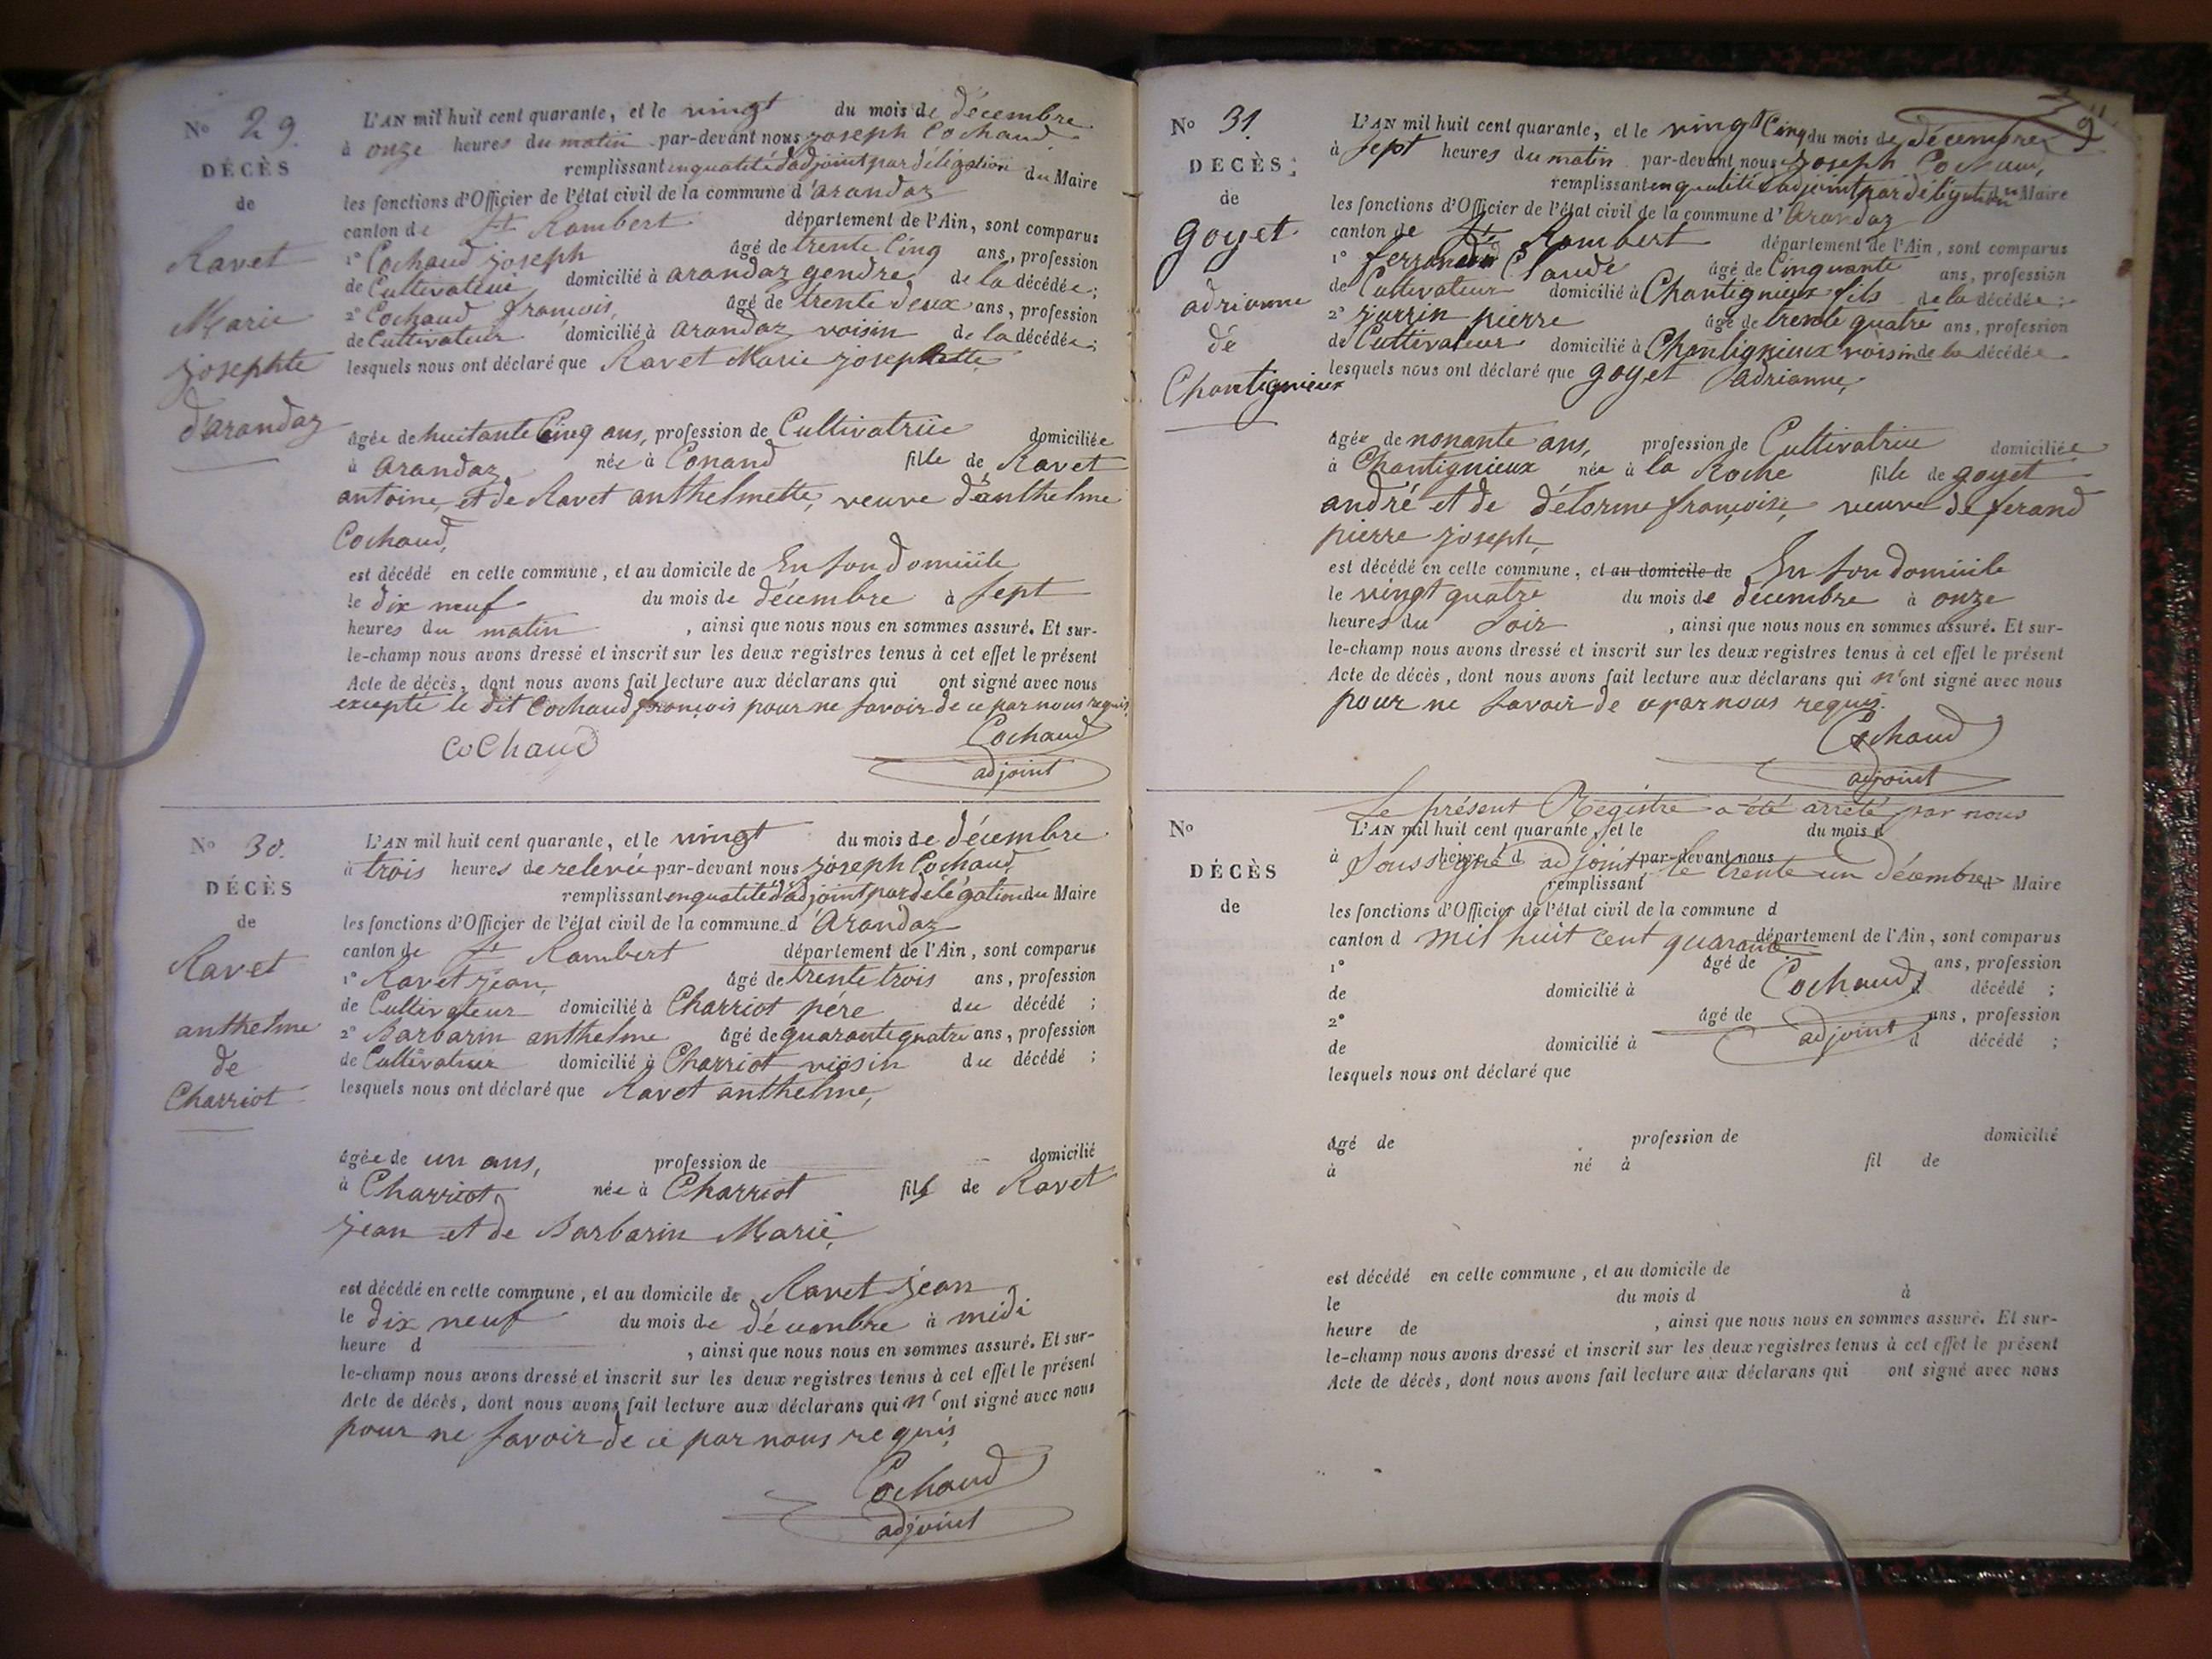 No 29.
DÉCÈS
de
Ravet
Marie
josephte
d'arandaz
L'AN mil huit cent quarante, et le vingt du mois de décembre
à onze heures du matin par-devant nous joseph Cochaud
remplissant en qualité d'adjoint par délégation du Maire
les fonctions d'Officier de l'état civil de la commune d'arandaz
canton de St Rambert département de l'Ain, sont comparus
1° Cochaud joseph âgé de trente Cinq ans, profession
de Cultivateur domicilié à arandaz gendre de la décédée;
2° Cochaud françois, âgé de trente deux ans, profession
de Cultivateur domicilié à arandaz voisin de la décédée;
lesquels nous ont déclaré que Ravet Marie josephte
âgée de huitante Cinq ans, profession de Cultivatrice domiciliée
à arandaz née à Conand fille de Ravet
antoine, et de Ravet anthelmette, veuve d'anthelme
Cochaud,
est décédé en cette commune, et au domicile de En son domicile
le dix neuf du mois de décembre à sept
heures du matin, ainsi que nous nous en sommes assuré. Et sur-
le-champ nous avons dressé et inscrit sur les deux registres tenus à cet effet le présent
Acte de décès, dont nous avons fait lecture aux déclarans qui ont signé avec nous
excepté le dit Cochaud françois pour ne savoir de ce par nous requis
CoChaud Cochaud
adjoint
No 30.
DÉCÈS
de
Ravet
anthelme
de
Charriot
L'AN mil huit cent quarante, et le vingt du mois de décembre
à trois heures de relevée par-devant nous joseph Cochaud,
remplissant en qualité d'adjoint par délégation du Maire
les fonctions d'Officier de l'état civil de la commune d'Arandaz
canton de St Rambert département de l'Ain, sont comparus
1° Ravet jean, âgé de trente trois ans, profession
de Cultivateur domicilié à Charriot père du décédé;
2° Barbarin anthelme âgé de quarante quatre ans, profession
de Cultivateur domicilié à Charriot viosin du décédé;
lesquels nous ont déclaré que Ravet anthelme,
âgée de un ans, profession de domicilié
à Charriot, née à Charriot fils de Ravet
jean et de Barbarin Marie,
est décédé en cette commune, et au domicile de Ravet jean
le dix neuf du mois de décembre à midi
heure d , ainsi que nous nous en sommes assuré. Et sur-
le-champ nous avons dressé et inscrit sur les deux registres tenus à cet effet le présent
Acte de décès, dont nous avons fait lecture aux déclarans qui n'ont signé avec nous
pour ne savoir de ce par nous requis
Cochaud
adjoint
No 31.
DÉCÈS
de
goyet
adrianne
de
Chantignieux
L'AN mil huit cent quarante, et le vingt Cinq du mois de décembre
à sept heures du matin par-devant nous joseph Cochaud,
remplissant en qualité d'adjoint par délégation du Maire
les fonctions d'Officier de l'état civil de la commune d'Arandaz
canton de St Rambert département de l'Ain, sont comparus
1° Claude âgé de Cinquante ans, profession
de Cultivateur domicilié à Chantignieux fils de la décédée;
2° pierre âgé de trente quatre ans, profession
de Cultivateur domicilié à Chantignieux voisin de la décédée
lesquels nous ont déclaré que goyet adrianne,
âgée de nonante ans, profession de Cultivatrice domiciliée
à Chantignieux née à la Roche fille de goyet
andré et de délorme françoise, veuve de ferand
pierre joseph,
est décédé en cette commune, et au domicile de En son domicile
le vingt quatre du mois de décembre à onze
heures du soir, ainsi que nous nous en sommes assuré. Et sur-
le-champ nous avons dressé et inscrit sur les deux registres tenus à cet effet le présent
Acte de décès, dont nous avons fait lecture aux déclarans qui n'ont signé avec nous
pour ne savoir de ce par nous requis.
Cochaud
adjoint
Le présent Registre a été arrêté par nous
No L'AN mil huit cent quarante, et le du mois d
à heure d par-devant nous
soussigné adjoint le trente un décembre
DÉCÈS
de
remplissant d Maire
les fonctions d'Officier de l'état civil de la commune d
canton d département de l'Ain, sont comparus
mil huit cent quarante
1° âgé de ans, profession
de domicilié à d décédé ;
Cochaud
2° âgé de ans, profession
adjoint
de domicilié à d décédé ;
lesquels nous ont déclaré que
âgé de profession de domicilié
à né à fil de
est décédé en cette commune, et au domicile de
le du mois d à
heure de , ainsi que nous nous en sommes assuré. Et sur-
le-champ nous avons dressé et inscrit sur les deux registres tenus à cet effet le présent
Acte de décès, dont nous avons fait lecture aux déclarans qui ont signé avec nous